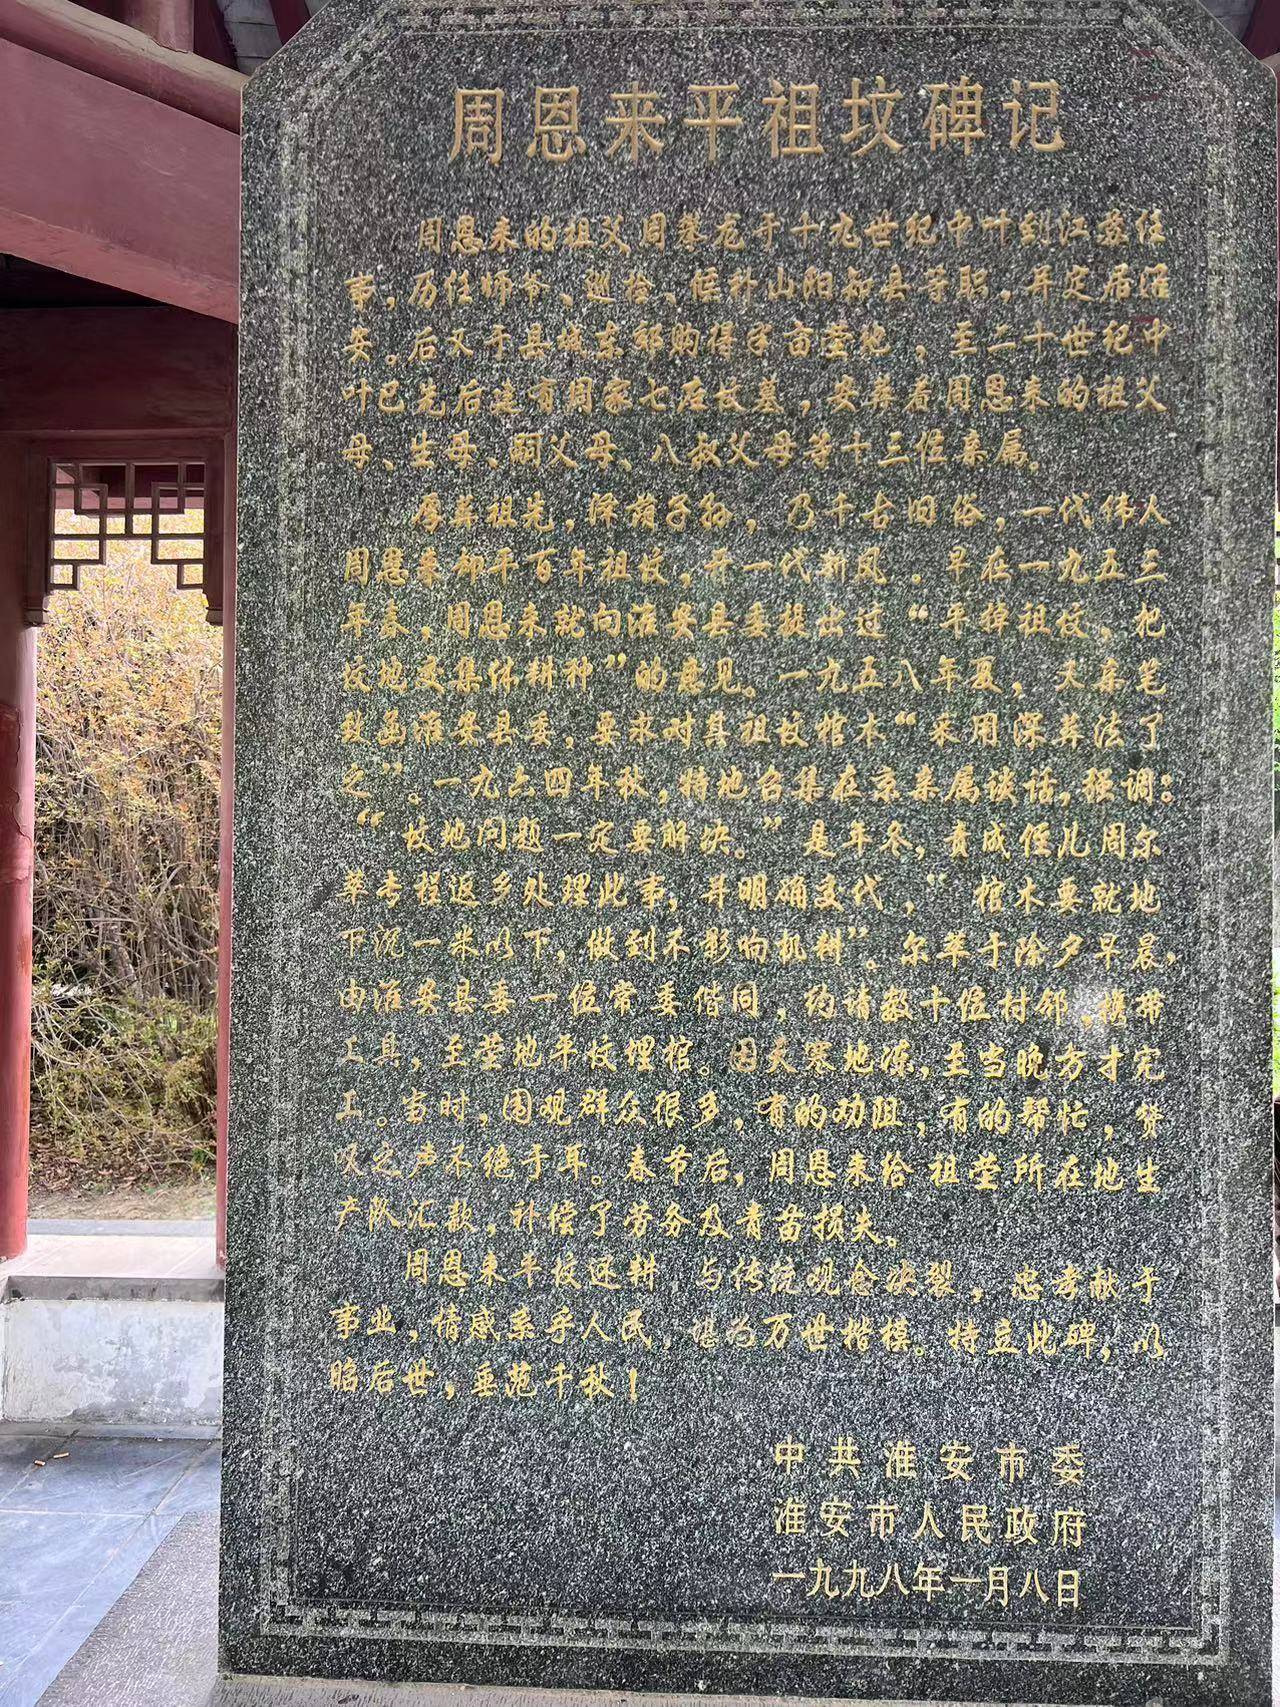 周恩来平祖坟碑记
周恩来的祖父周攀龙于十九世纪中叶到江苏任
事，历任师爷、巡检、候补山阳知县等职，并定居淮
安。后又于县城东郊购得半亩茔地，至二十世纪中
叶已先后建有周家七座坟墓，安葬着周恩来的祖父
母、生母、嗣父母、八叔父母等十三位亲属。
厚葬祖先，泽荫子孙，乃千古旧俗，一代伟人
周恩来却平百年祖坟，开一代新风。早在一九五三
年春，周恩来就向淮安县委提出过“平掉祖坟，把
坟地交集体耕种”的意见。一九五八年夏，又亲笔
致函淮安县委，要求对其祖坟棺木“采用深葬法了
之”。一九六四年秋，特地召集在京亲属谈话，强调：
“坟地问题一定要解决。”是年冬，责成侄儿周尔
萃专程返乡处理此事，并明确交代，“棺木要就地
下沉一米以下，做到不影响机耕”。尔萃于除夕早晨，
由淮安县委一位常委偕同，约请数十位村邻，携带
工具，至茔地平坟埋棺。因天寒地冻，至当晚方才完
工。当时，围观群众很多，有的劝阻，有的帮忙，赞
叹之声不绝于耳。春节后，周恩来给祖茔所在地生
产队汇款，补偿了劳务及青苗损失。
周恩来平坟还耕 与传统观念决裂，忠孝献于
事业，情感系乎人民，堪为万世楷模。特立此碑，以
昭后世，垂范千秋！
中共淮安市委
淮安市人民政府
一九九八年一月八日